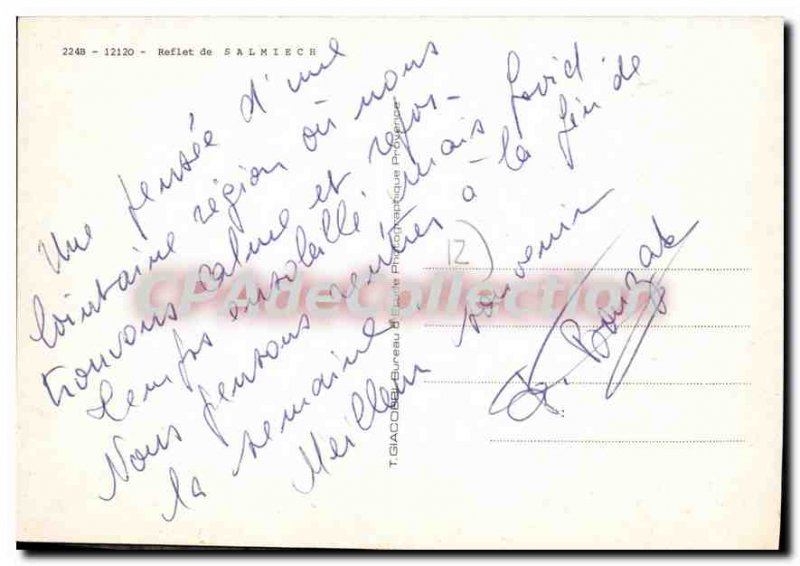 2248 - 12120 - Reflet de SALMIECH
Une pensée d'une
lointaine région où nous
trouvons calme et repos -
temps ensoleillé mais froid
Nous pensons rentrer à la fin de
la semaine
Meilleur souvenir
12
T. GIACOBBI Bureau d'Etude Photographique Provence
CPAdeCollection